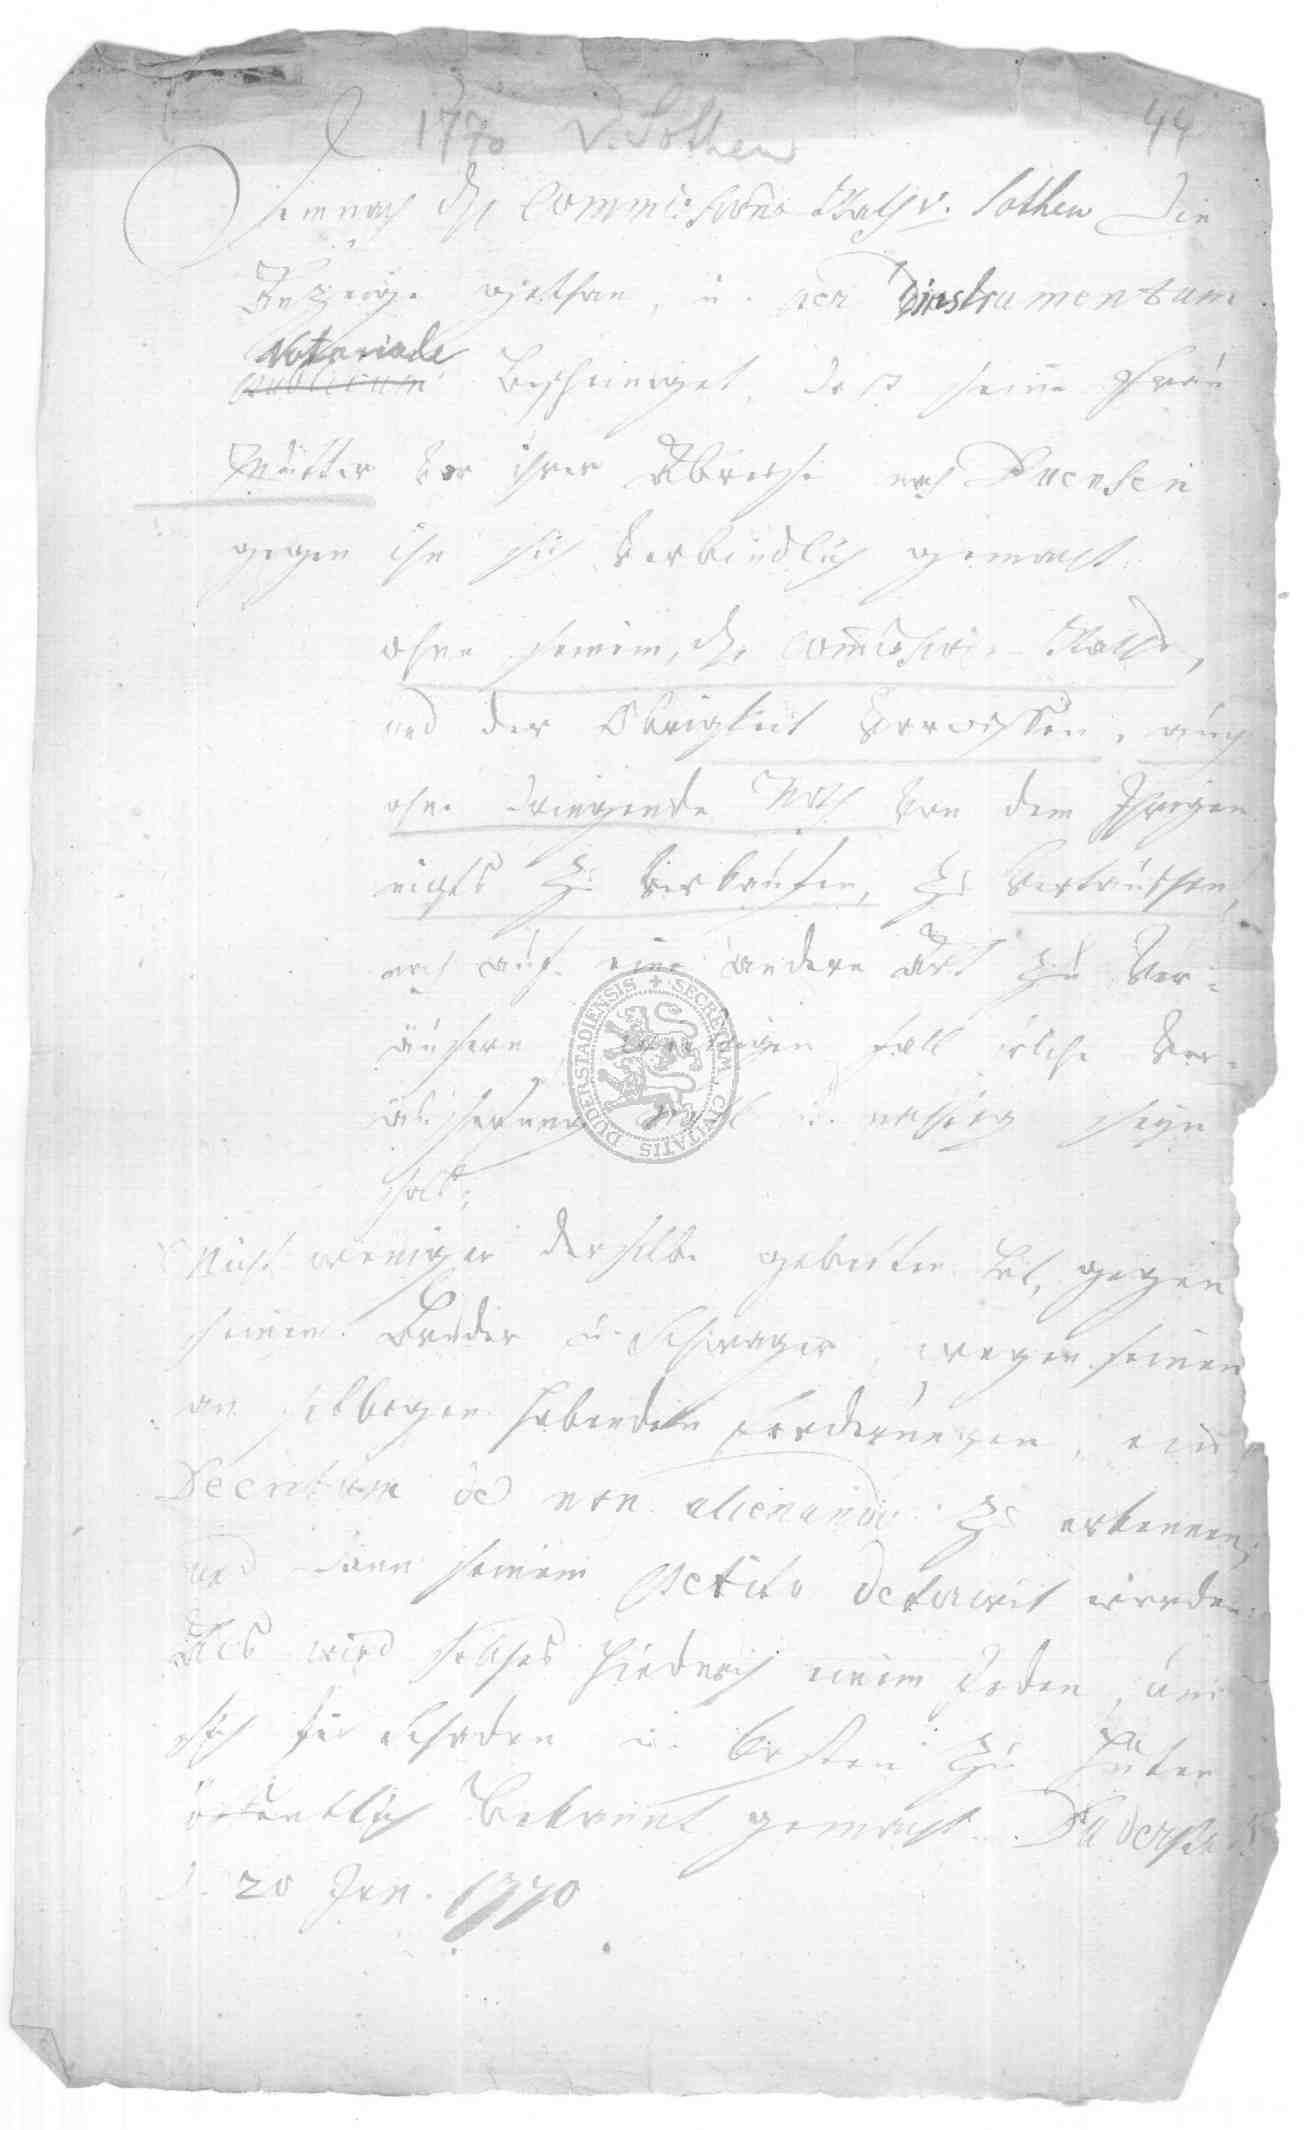 1770 v. Sothen
44
Demnach der Commissions Rath v. Sothen die
Anzeige gethan, u. per instrumentum
Notariale
publicum bescheiniget, daß seine Frau
Mutter vor ihrer Abreise nach Duensen
gegen ihn sich verbindlich gemacht
ohne seinem, des Commissions Raths,
und der Obrigkeit Vorwissen, auch
ohne dringende Noth von dem Ihrigen
nichts zu verkaufen, zu vertauschen,
noch auf eine andere Art zu ver-
äußern, widrigen fall solche Ver-
äußerung null u. nichtig seyn
soll;
Nicht weniger derselbe gebeten hat, gegen
seinen Bruder u. Schwager, wegen seinen
an selbigen habenden forderungen, ein
Decretum de non alienando zu erkennen,
und dann seinem petito deferirt worden
Als wird solches hiedurch einem Jeden, um
sich für Schaden u. Kosten zu hüten
öffentlich bekannt gemacht. Duderstadt
d. 20 Jan. 1770
SECRETUM CIVITATIS DUDERSTADIENSIS